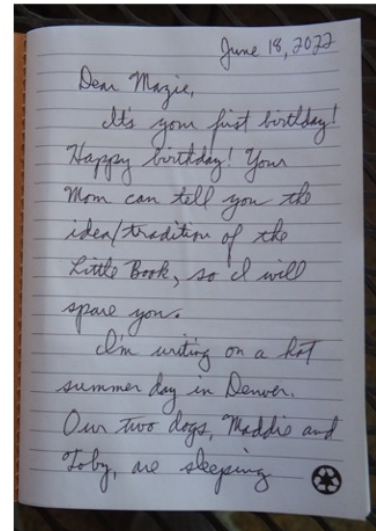 June 18, 2022
Dear Mazie,
It's your first birthday!
Happy birthday! Your
Mom can tell you the
idea/tradition of the
Little Book, so I will
spare you.
I'm writing on a hot
summer day in Denver.
Our two dogs, Maddie and
Toby, are sleeping